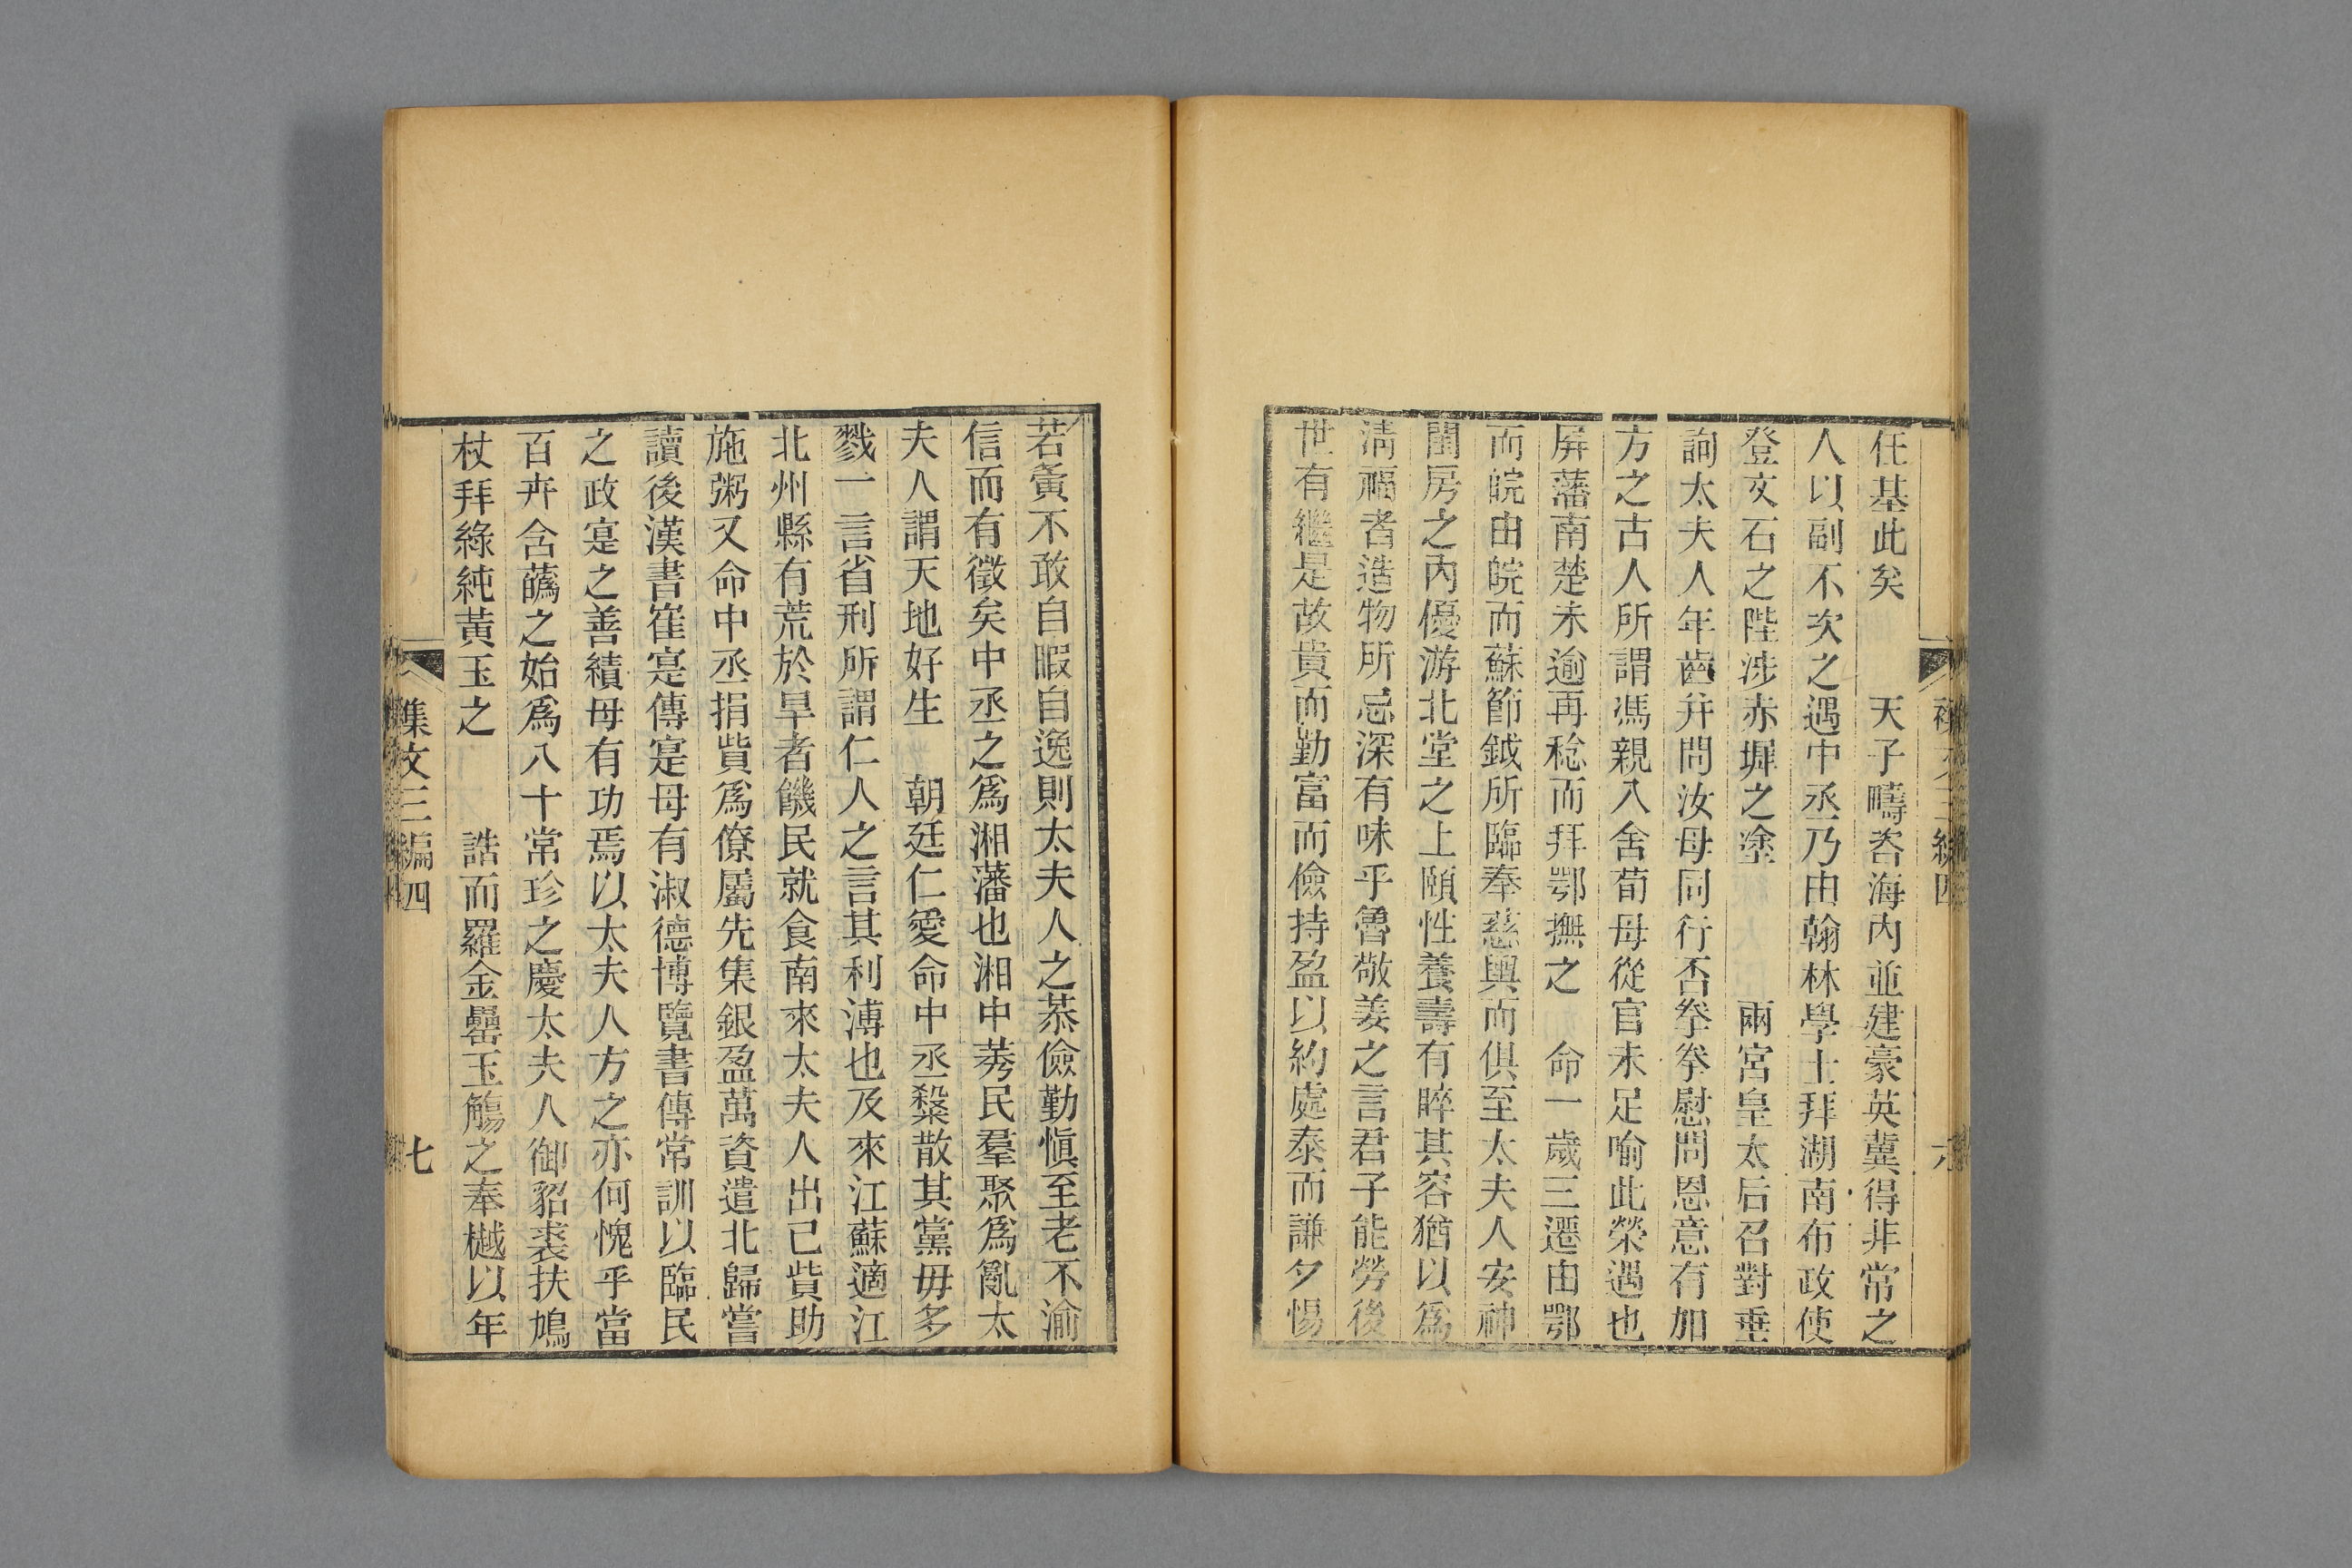 任基此矣　　天子疇咨海內並建豪英冀得非常之
人以副不次之遇中丞乃由翰林學士拜湖南布政使
登文石之陛涉赤墀之塗　　　兩宮皇太后召對垂
詢太夫人年齒幷問汝母同行否拳拳慰問恩意有加
方之古人所謂馮親入舍荀母從官未足喻此榮遇也
屏藩南楚未逾再稔而拜鄂撫之　命一歲三遷由鄂
而皖由皖而蘇節鉞所臨奉慈輿而俱至太夫人安神
閨房之內優游北堂之上頤性養壽有睟其容猶以爲
淸福者造物所忌深有味乎魯敬姜之言君子能勞後
世有繼是故貴而勤富而儉持盈以約處泰而謙夕惕
六
若夤不敢自暇自逸則太夫人之恭儉勤愼至老不渝
信而有徵矣中丞之爲湘藩也湘中莠民羣聚爲亂太
夫人謂天地好生　朝廷仁愛命中丞糳散其黨毋多
戮一言省刑所謂仁人之言其利溥也及來江蘇適江
北州縣有荒於旱者饑民就食南來太夫人出己貲助
施粥又命中丞捐貲爲僚屬先集銀盈萬資遣北歸嘗
讀後漢書崔寔傳寔母有淑德博覽書傳常訓以臨民
之政寔之善績母有功焉以太夫人方之亦何愧乎當
百卉含蘤之始爲八十常珍之慶太夫人御貂裘扶鳩
杖拜綠純黃玉之　　誥而羅金罍玉觴之奉樾以年
集文三編四
七